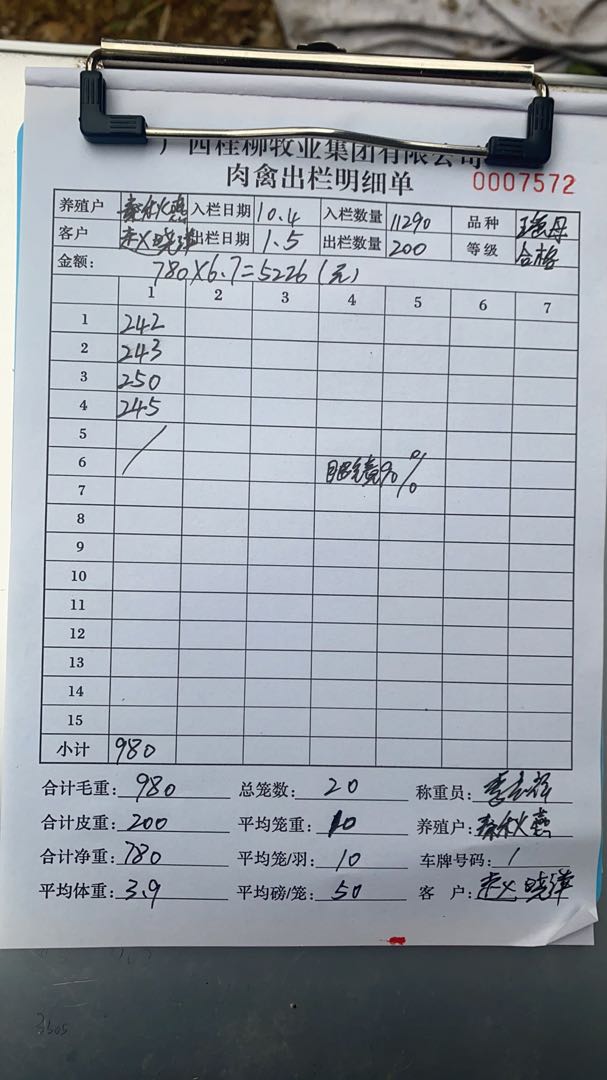 广西桂柳牧业集团有限公司
肉禽出栏明细单 0007572
养殖户 秦秋燕 入栏日期 10.4 入栏数量 11290 品种
客户 出栏日期 1.5 出栏数量 200 等级 合格
金额: 780×6.7=5226(元)
1 2 3 4 5 6 7
1 242
2 243
3 250
4 245
5 /
6 眼镜90%
7
8
9
10
11
12
13
14
15
小计 980
合计毛重: 980 总笼数: 20 称重员:
合计皮重: 200 平均笼重: 10 养殖户: 秦秋燕
合计净重: 780 平均笼/羽: 10 车牌号码: /
平均体重: 3.9 平均磅/笼: 50 客户: